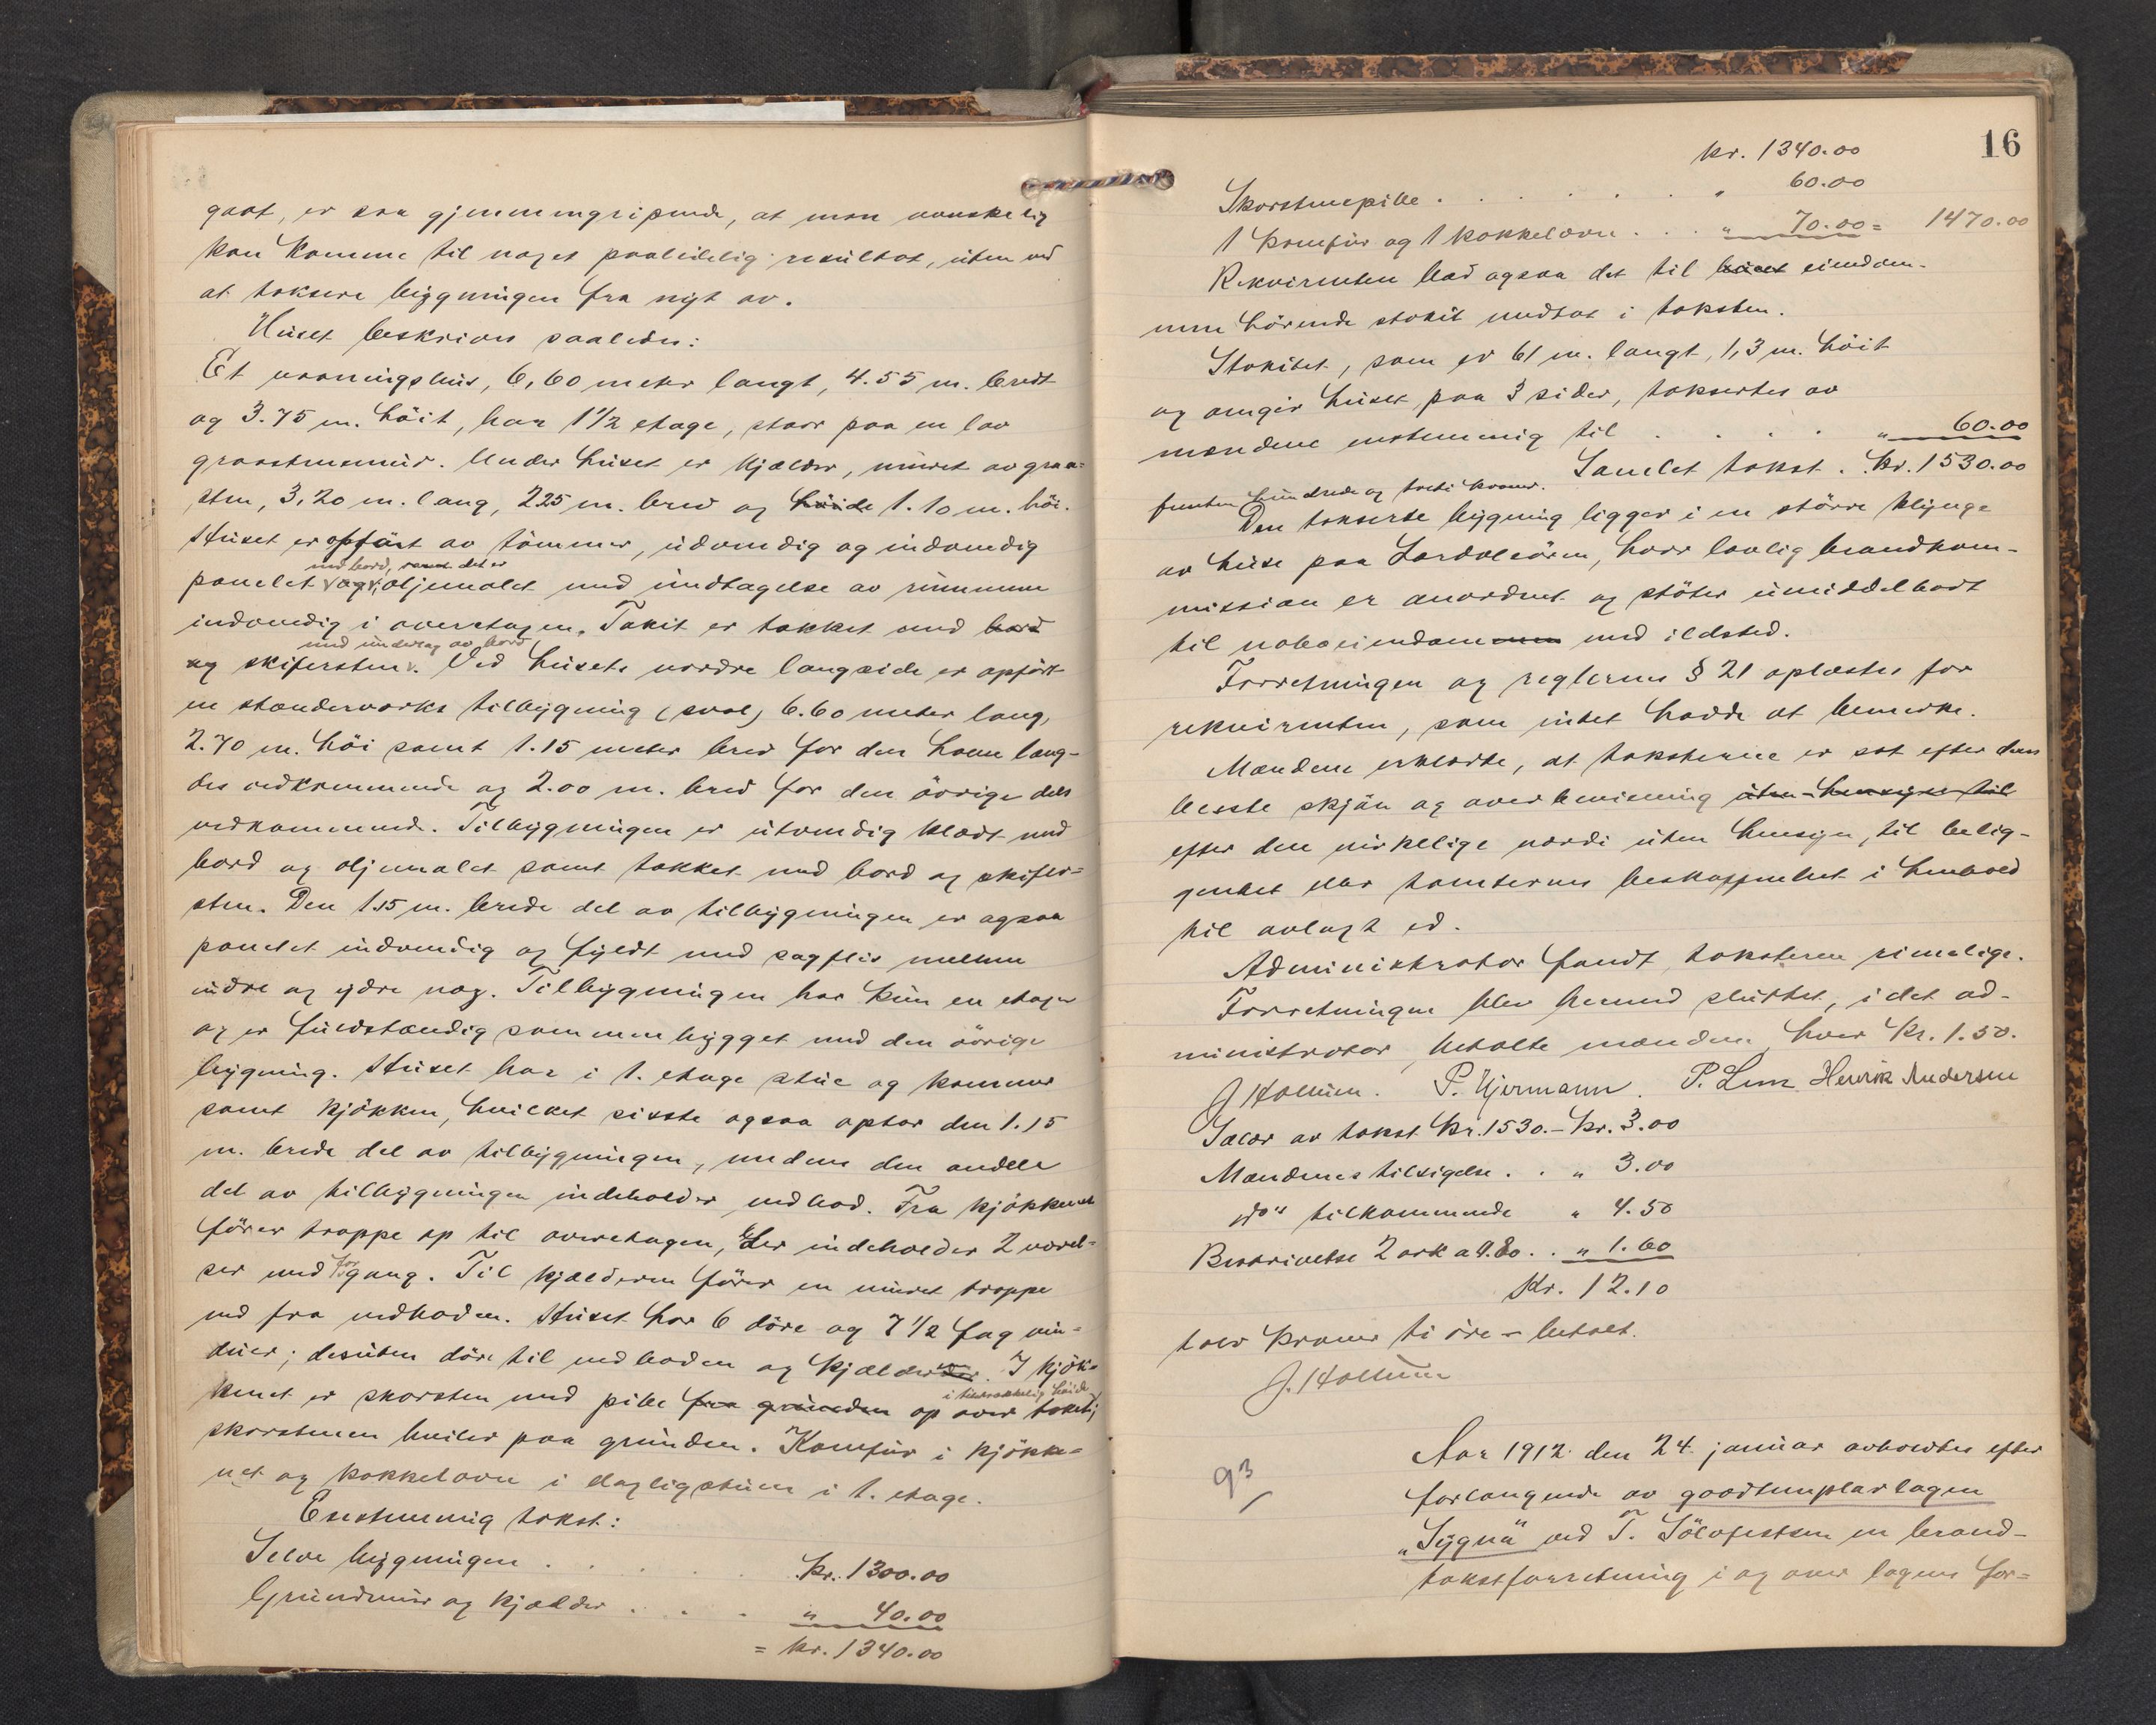 gaat, er saa gjennemgripende, at man vanskelig
kan komme til noget paalidelig resultat, uten ved
at taksere bygningen fra nyt av.
Huset beskrives saaledes:
Et vaaningshus, 6,60 meter langt, 4.55 m. bredt
og 3.75 m. höit, har 1 1/2 etage, staar paa en lav
graastensmur. Under huset er kjælder, muret av graa-
sten, 3,20 m. lang, 2.25 m. bred og höide 1.10 m. höi.
Huset er opfört av tömmer, udvendig og indvendig
med bord, samt det er
panelet og oljemalet med undtagelse av rummene
indvendig i overetagen. Taket er tækket med bord
med underlag av bord
og skifersten. Ved husets nordre langside er opfört
en stænderverks tilbygning (sval) 6.60 meter lang,
2.70 m. höi samt 1.15 meter bred for den halve læng-
des vedkommende og 2.00 m. bred for den övrige dels
vedkommende. Tilbygningen er utvendig klædt med
bord og oljemalet samt tækket med bord og skifer-
sten. Den 1.15 m. brede del av tilbygningen er ogsaa
panelet indvendig og fyldt med sagflis mellem
indre og ydre væg. Tilbygningen har kun en etage
og er fuldstændig sammenbygget med den övrige
bygning. Huset har i 1. etage stue og kammer
samt kjökken, hvilket sidste ogsaa optar den 1.15
m. brede del av tilbygningen, medens den anden
del av tilbygningen indeholder vedbod. Fra kjökkenet
förer trappe op til overetagen, der indeholder 2 værel-
for
ser med gang. Til kjælderen förer en muret trappe
ned fra vedboden. Huset har 6 döre og 7 1/2 fag vin-
duer; desuten döre til vedboden og kjælderen. I kjök-
i tilstrækkelig höide
kenet er skorsten med pibe fra grunden op over taket;
skorstenen hviler paa grunden. Komfur i kjökke-
net og kakkelovn i dagligstuen i 1. etage.
Enstemmig takst:
Selve bygningen . . . . . kr. 1300.00
Grundmur og kjælder . . . " 40.00
= kr. 1340.00
16
kr. 1340.00
Skorstenspibe . . . . . " 60.00
1 komfur og 1 kakkelovn . . . " 70.00 = 1470.00
Rekvirenten bad ogsaa det til huset eiendom-
men hörende stakit medtat i taksten.
Stakitet, som er 61 m. langt, 1,3 m. höit
og omgir huset paa 3 sider, taksertes av
mændene enstemmig til . . . . " 60.00
Samlet takst . kr. 1530.00
femten hundrede og tredi kroner.
Den takserte bygning ligger i en större klynge
av huse paa Lærdalsören, hvor lovlig brandkom-
mission er anordnet og stöter umiddelbart
til naboeiendommen med ildsted.
Forretningen og reglernes § 21 oplæstes for
rekvirenten, som intet hadde at bemerke.
Mændene erklærte, at taksterne er sat efter deres
bedste skjön og overbevisning uten hensyn til
efter den virkelige værdi uten hensyn til belig-
genhet eller tomternes beskaffenhet i henhold
til avlagt ed.
Administrator fandt taksterne rimelige.
Forretningen blev hermed sluttet, idet ad-
ministrator betalte mændene hver kr. 1.50.
J Hollum. P. Hjermann. P. Lem Henrik Andersen
Salær av takst kr. 1530.- kr. 3.00
Mændenes tilsigelse . . " 3.00
do" tilkommende " 4.50
Beskrivelse 2 ark a 0.80 . . " 1.60
Kr. 12.10
tolv kroner ti öre - betalt.
J. Hollum
93
Aar 1912 den 24. januar avholdtes efter
forlangende av goodtemplarlagen
"Sygna" ved T. Sölvfestsen en brand-
takstforretning i og over lagens for-